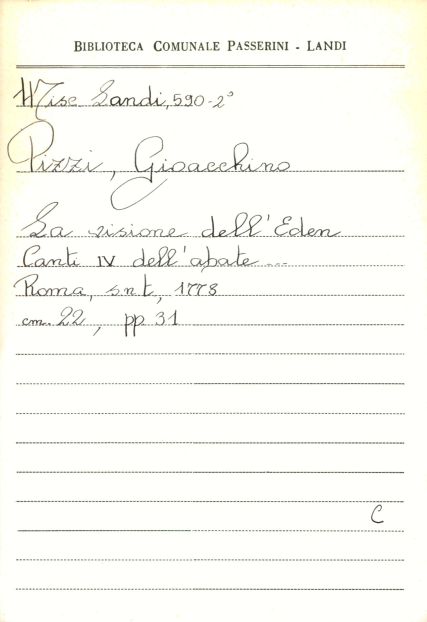 BIBLIOTECA COMUNALE PASSERINI - LANDI
Misc Landi, 590-2°
Pizzi, Gioacchino
La visione dell'Eden
Canti IV dell'abate ...
Roma, s.n.t, 1778
cm. 22, pp 31
C